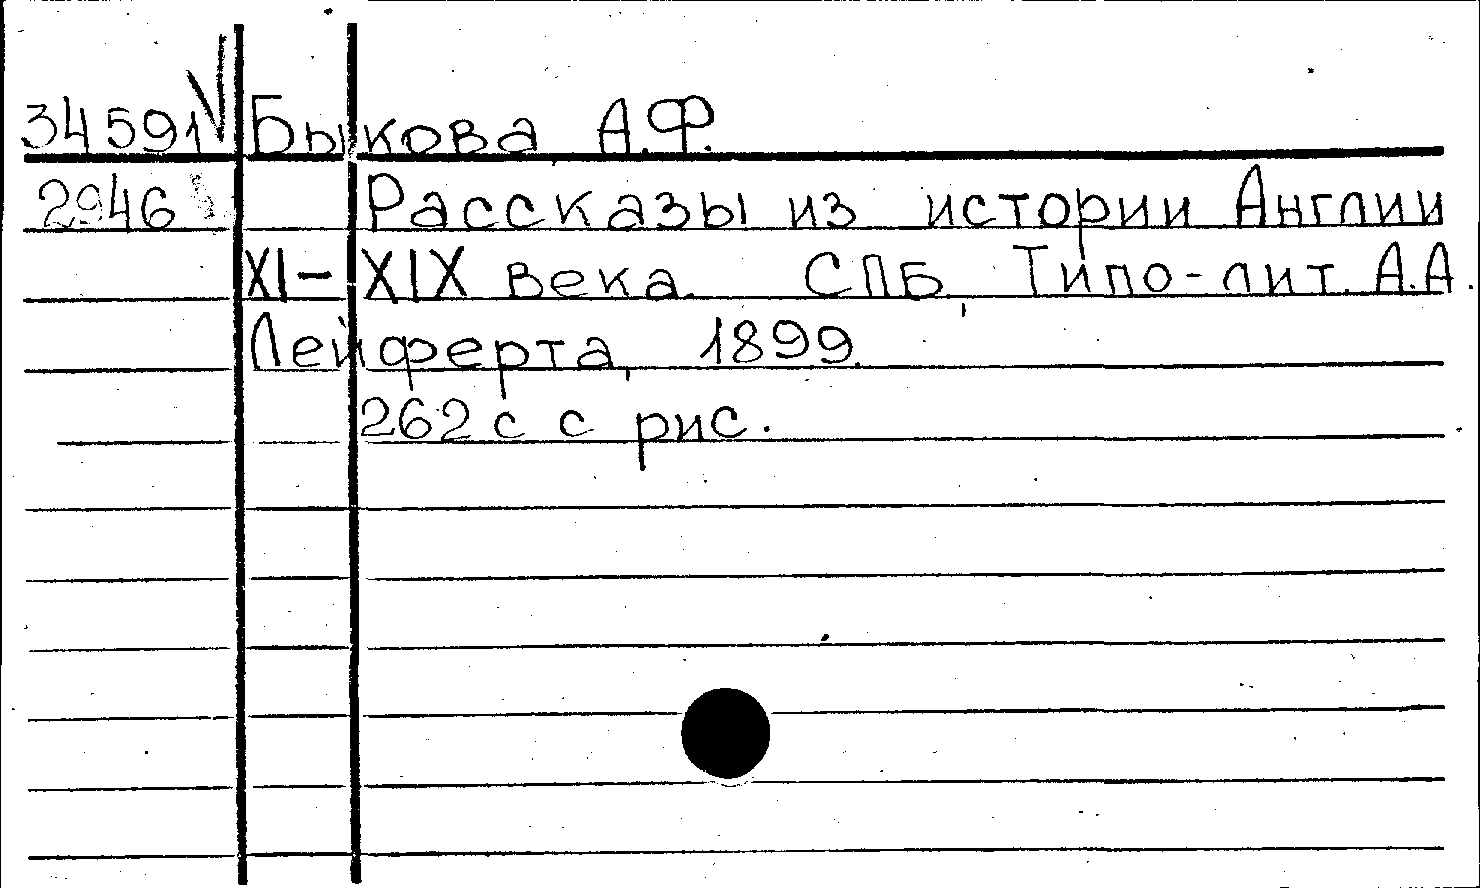 34591 Быкова А.Ф.
2946 Рассказы из истории Англии
XI-XIX века. СПБ, Типо-лит. А.А.
Лейферта, 1899.
262 с с рис.